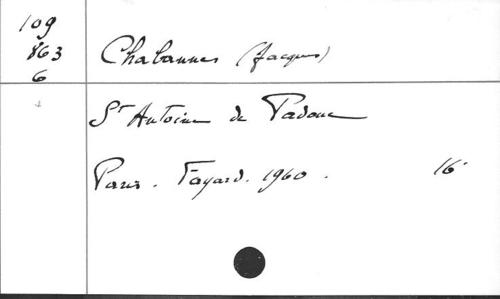 109
863
6
Chabannes (Jacques)
St Antoine de Padoue
Paris. Fayard. 1960. 16°